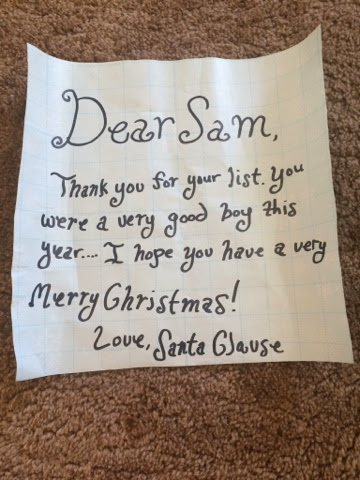 Dear Sam,
Thank you for your list. You
were a very good boy this
year.... I hope you have a very
Merry Christmas!
Love, Santa Clause